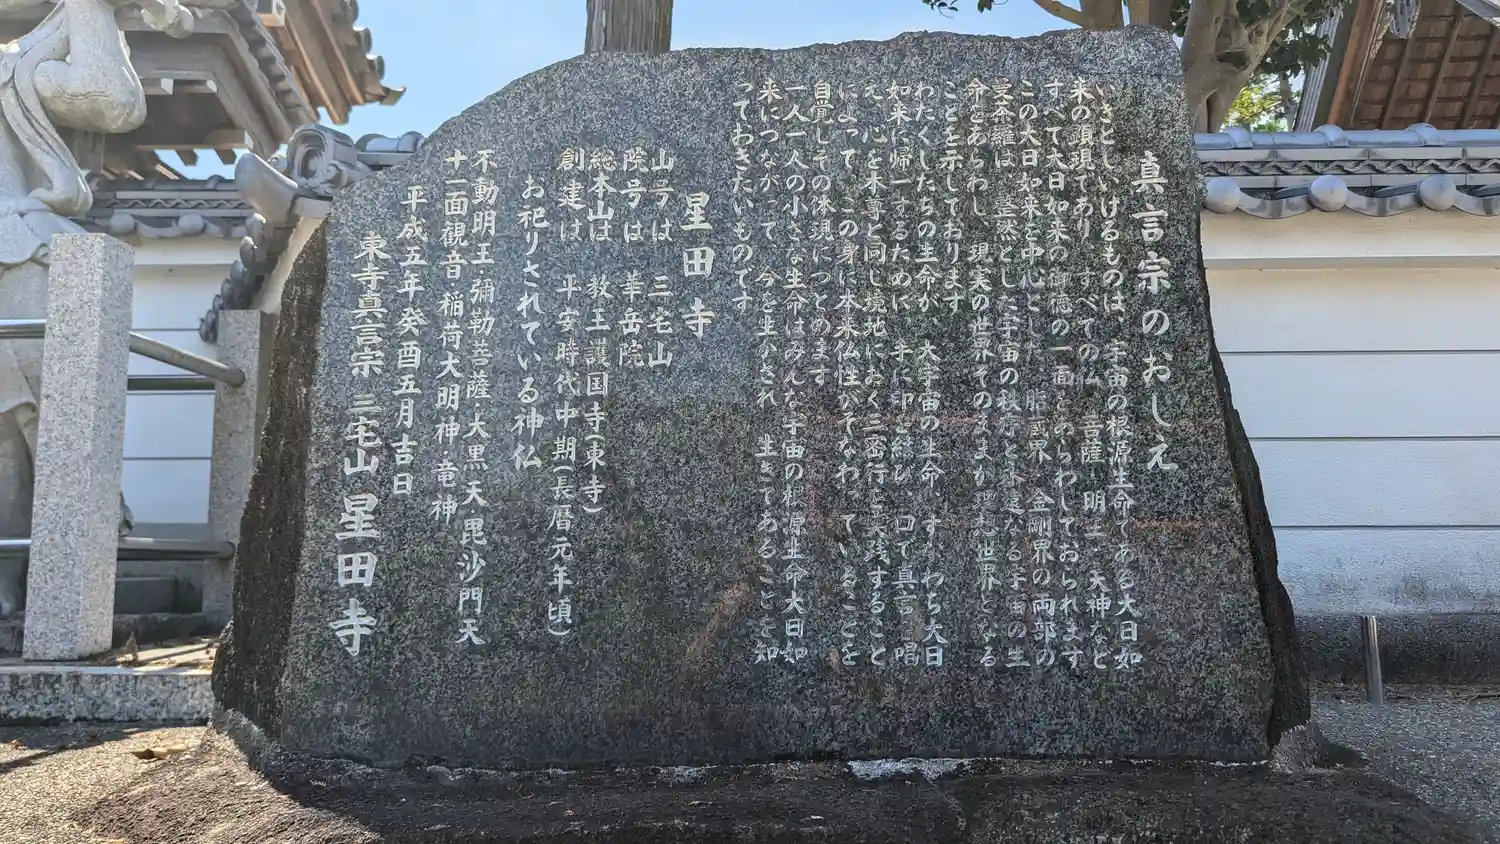 真言宗のおしえ
いきとしいけるものは、宇宙の根源生命である大日如
来の顕現であり すべての仏 菩薩・明王・天神など
すべて大日如来の御徳の一面をあらわしておられます
この大日如来を中心とした 胎蔵界 金剛界の両部の
曼荼羅は 整然とした宇宙の秩序と永遠なる宇宙の生
命をあらわし 現実の世界そのままが理想世界となる
ことを示しております
わたくしたちの生命が、大宇宙の生命、すなわち大日
如来に帰一するために 手に印を結び 口で真言を唱
え 心を本尊と同じ境地におく三密行を実践すること
によって、この身に本来仏性がそなわっていることを
自覚しその体現につとめます
一人一人の小さな生命はみんな宇宙の根源生命大日如
来につながって 今を生かされ 生きてあることを知
っておきたいものです
星田寺
山号は 三宅山
院号は 華岳院
総本山は 教王護国寺(東寺)
創建は 平安時代中期(長暦元年頃)
お祀りされている神仏
不動明王・彌勒菩薩・大黒天・毘沙門天
十一面観音・稲荷大明神・竜神
平成五年癸酉五月吉日
東寺真言宗 三宅山 星田寺